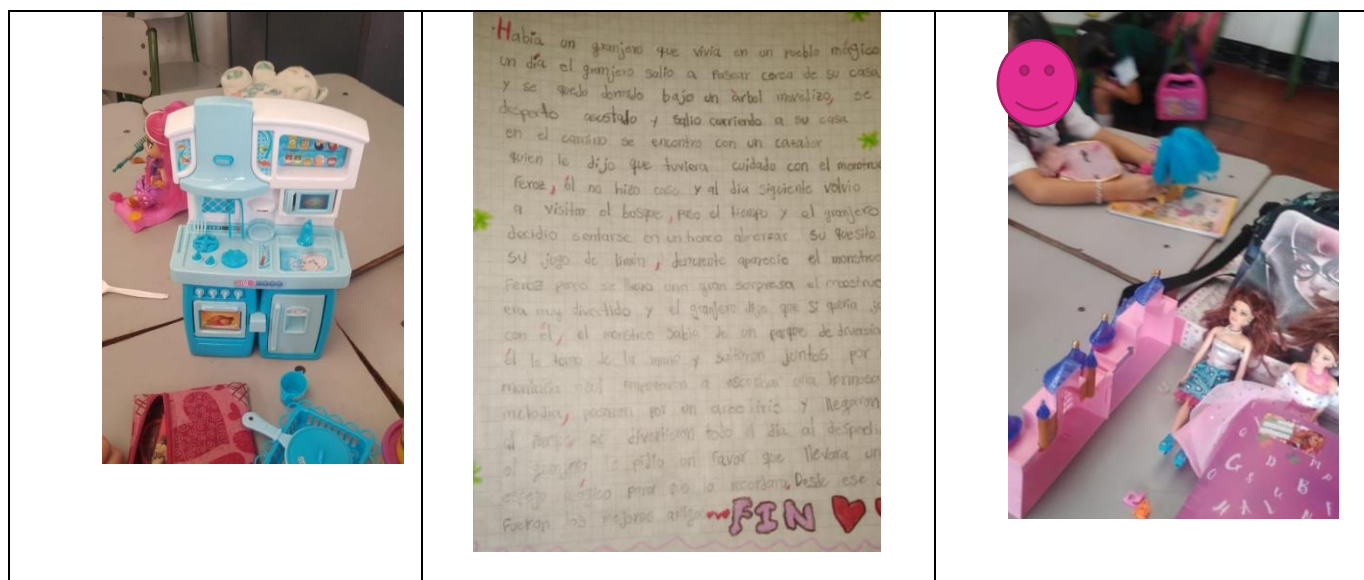 Había un granjero que vivía en un pueblo mágico
un día el granjero salio a pasear cerca de su casa
y se quedo dormido bajo un árbol movedizo, se
desperto asustado y salio corriendo a su casa
en el camino se encontro con un cazador
quien le dijo que tuviera cuidado con el monstruo
feroz, él no hizo caso y al día siguiente volvio
a visitar el bosque, paso el tiempo y el granjero
decidio sentarse en un banco almorzar su quesito
su jugo de limón, derrente aparecio el monstruo
feroz pero se llevo una gran sorpresa el monstruo
era muy divertido y el granjero dijo que si quería
con él, el monstruo sabia de un parque de diversio
él lo tomo de la mano y saltaron juntos por
montaña empezaron a escuchar una hermosa
melodia, pasaron por un arco iris y llegaron
al parque se divertieron todo el día al despedi
el granjero le pidio un favor que llevara un
espejo mágico para que lo recordara, Desde ese
fueron los mejores amigos FIN